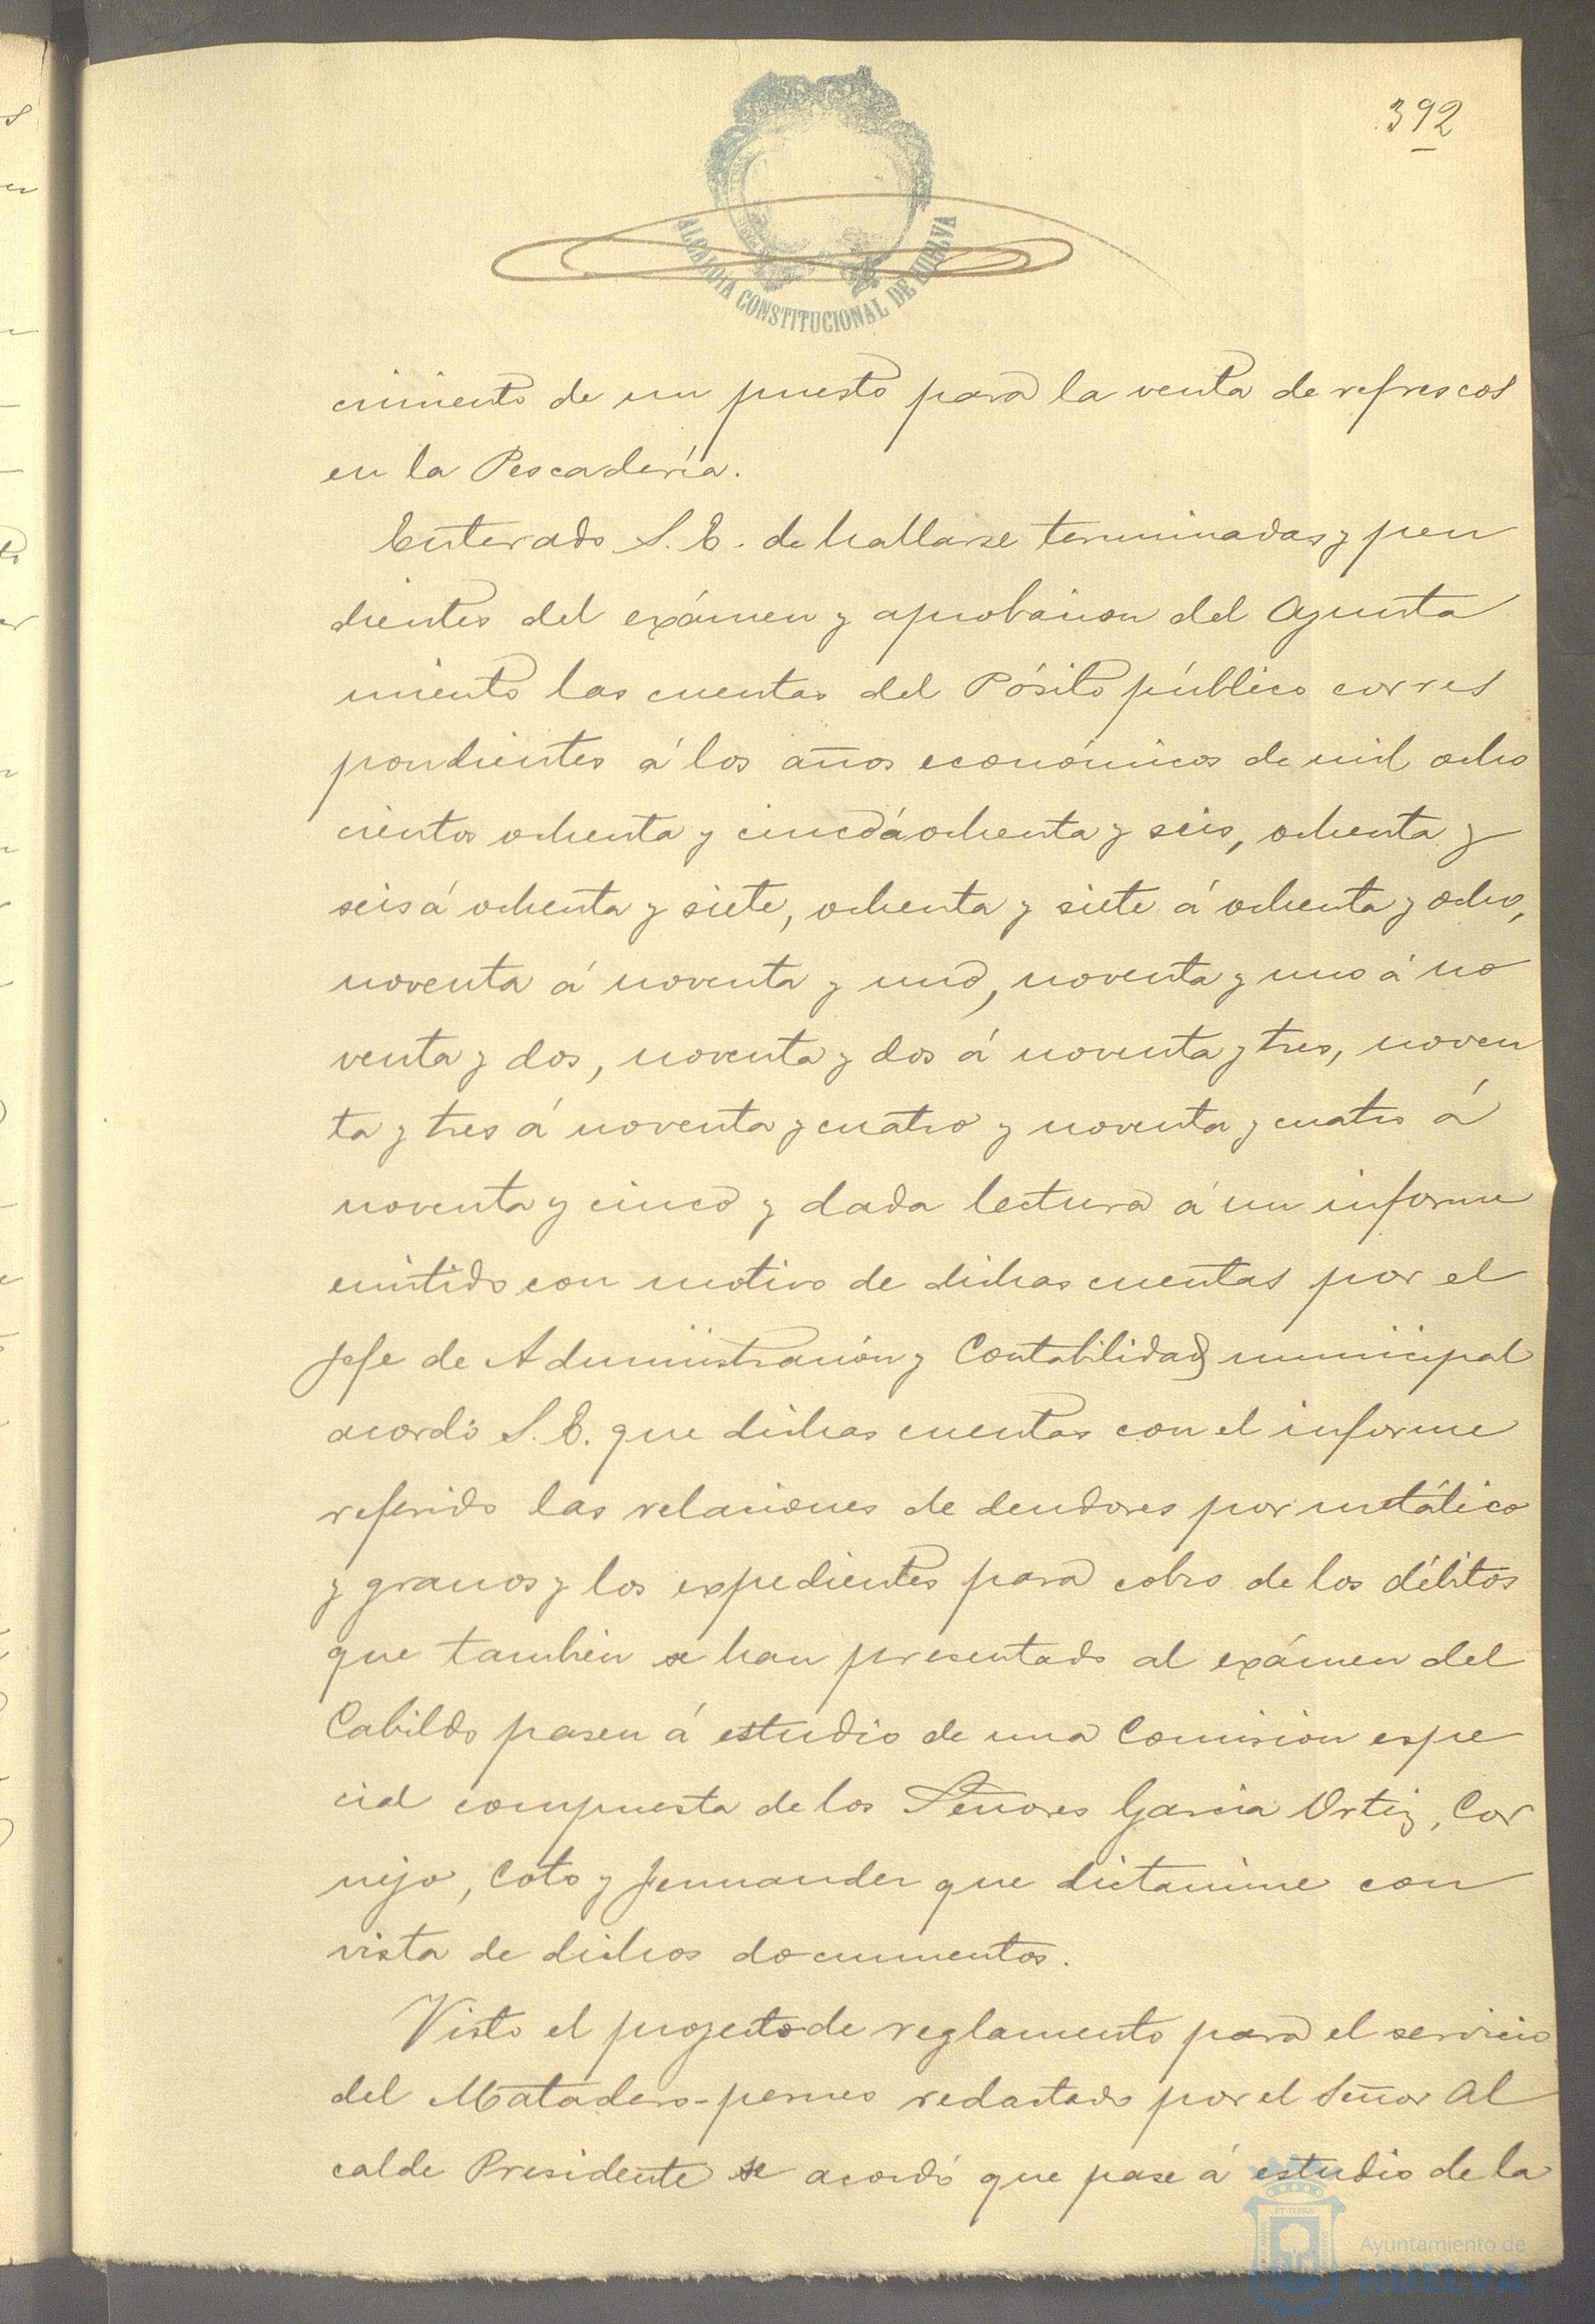 392
ALCALDIA CONSTITUCIONAL DE HUELVA
cimiento de un puesto para la venta de refrescos
en la Pescadería.
Enterado S. E. de hallarse terminadas y pen
dientes del exámen y aprobacion del Ayunta
miento las cuentas del Pósito público corres
pondientes á los años económicos de mil ocho
cientos ochenta y cinco á ochenta y seis, ochenta y
seis á ochenta y siete, ochenta y siete á ochenta y ocho,
noventa á noventa y uno, noventa y uno á no
venta y dos, noventa y dos á noventa y tres, noven
ta y tres á noventa y cuatro y noventa y cuatro á
noventa y cinco y dada lectura á un informe
emitido con motivo de dichas cuentas por el
Jefe de Administración y Contabilidad municipal
acordó S. E. que dichas cuentas con el informe
referido las relaciones de deudores por metálico
y granos y los expedientes para cobro de los débitos
que tambien se han presentado al exámen del
Cabildo pasen á estudio de una Comision espe
cial compuesta de los Señores Garcia Ortiz, Cor
nejo, Coto y que dictamine con
vista de dichos documentos.
Visto el proyecto de reglamento para el servicio
del Matadero- redactado por el Señor Al
calde Presidente se acordó que pase á estudio de la
Ayuntamiento de
HUELVA